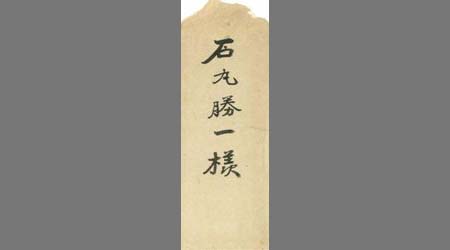 石丸勝一様